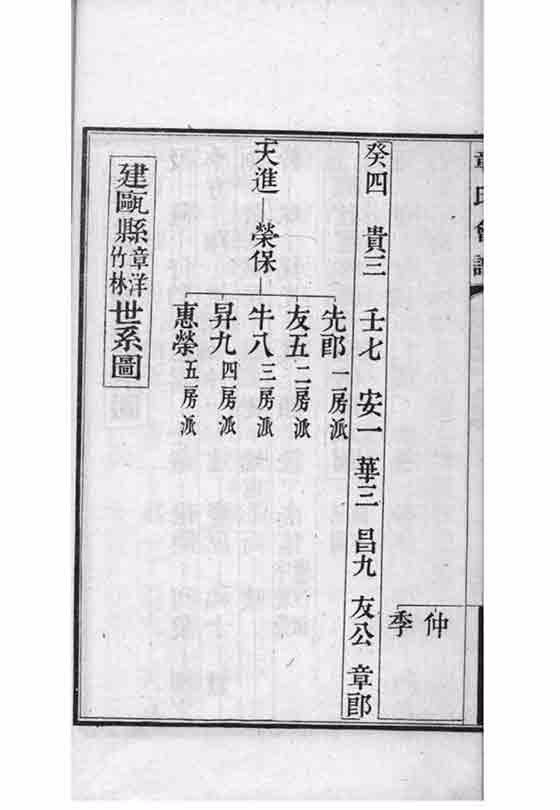 章氏會譜
仲
季
癸四 貴三 壬七 安一 華三 昌九 友公 章郎
天進 榮保
先郎 一房派
友五 二房派
牛八 三房派
昇九 四房派
惠榮 五房派
建甌縣章洋竹林世系圖